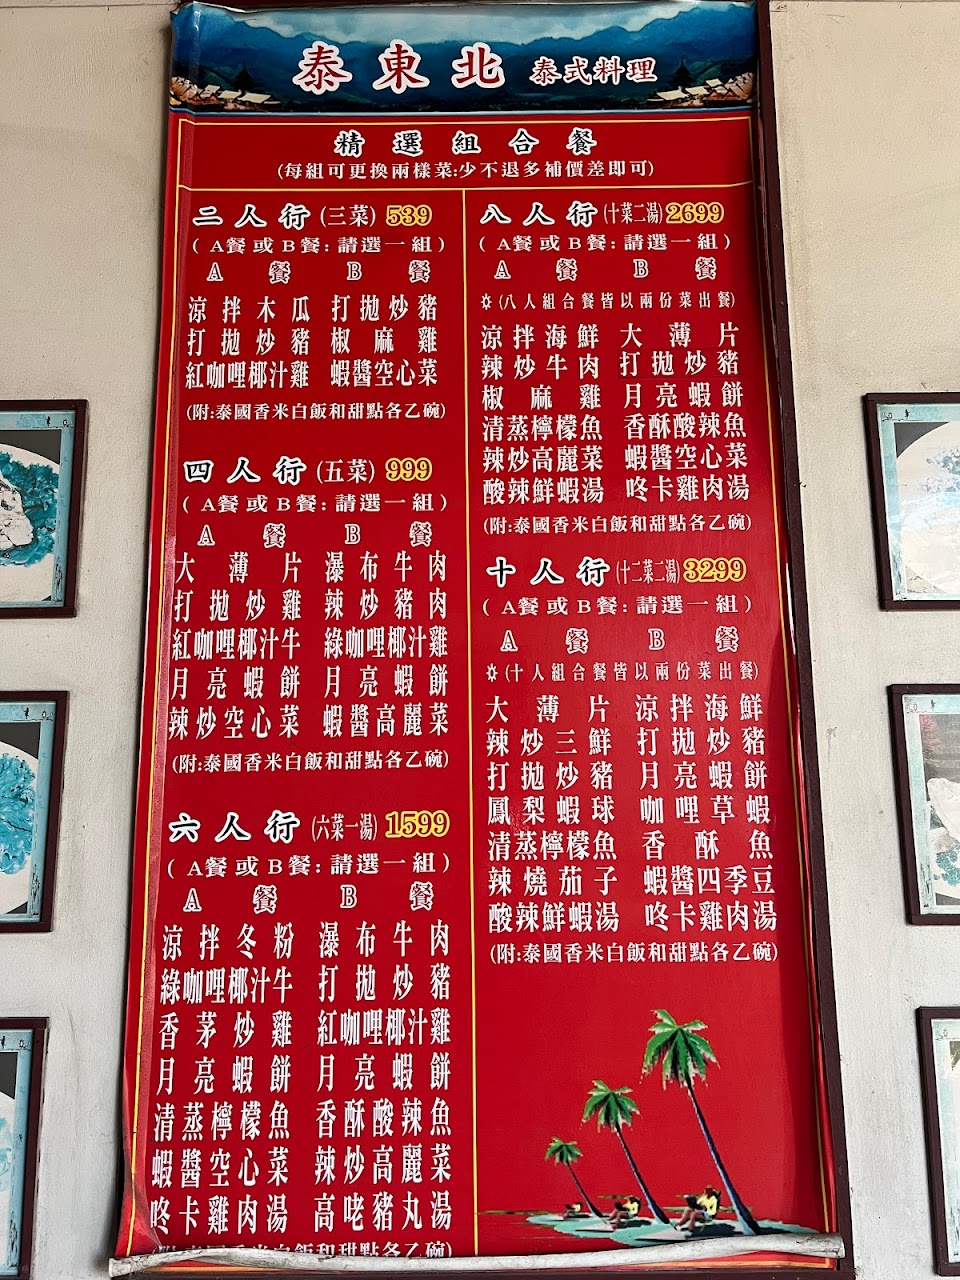 泰東北 泰式料理
精選組合餐
(每組可更換兩樣菜:少不退多補價差即可)
二人行(三菜) 539
(A餐或B餐:請選一組)
A餐 B餐
涼拌木瓜 打拋炒豬
打拋炒豬 椒麻雞
紅咖哩椰汁雞 蝦醬空心菜
(附:泰國香米白飯和甜點各乙碗)
四人行(五菜) 999
(A餐或B餐:請選一組)
A餐 B餐
大薄片 瀑布牛肉
打拋炒雞 辣炒豬肉
紅咖哩椰汁牛 綠咖哩椰汁雞
月亮蝦餅 月亮蝦餅
辣炒空心菜 蝦醬高麗菜
(附:泰國香米白飯和甜點各乙碗)
六人行(六菜一湯) 1599
(A餐或B餐:請選一組)
A餐 B餐
涼拌冬粉 瀑布牛肉
綠咖哩椰汁牛 打拋炒豬
香茅炒雞 紅咖哩椰汁雞
月亮蝦餅 月亮蝦餅
清蒸檸檬魚 香酥酸辣魚
蝦醬空心菜 辣炒高麗菜
咚卡雞肉湯 高咾豬丸湯
香米白飯和甜點各乙碗)
八人行(十菜二湯) 2699
(A餐或B餐:請選一組)
A餐 B餐
☼(八人組合餐皆以兩份菜出餐)
涼拌海鮮 大薄片
辣炒牛肉 打拋炒豬
椒麻雞 月亮蝦餅
清蒸檸檬魚 香酥酸辣魚
辣炒高麗菜 蝦醬空心菜
酸辣鮮蝦湯 咚卡雞肉湯
(附:泰國香米白飯和甜點各乙碗)
十人行(十二菜二湯) 3299
(A餐或B餐:請選一組)
A餐 B餐
☼(十人組合餐皆以兩份菜出餐)
大薄片 涼拌海鮮
辣炒三鮮 打拋炒豬
打拋炒豬 月亮蝦餅
鳳梨蝦球 咖哩草蝦
清蒸檸檬魚 香酥魚
辣燒茄子 蝦醬四季豆
酸辣鮮蝦湯 咚卡雞肉湯
(附:泰國香米白飯和甜點各乙碗)